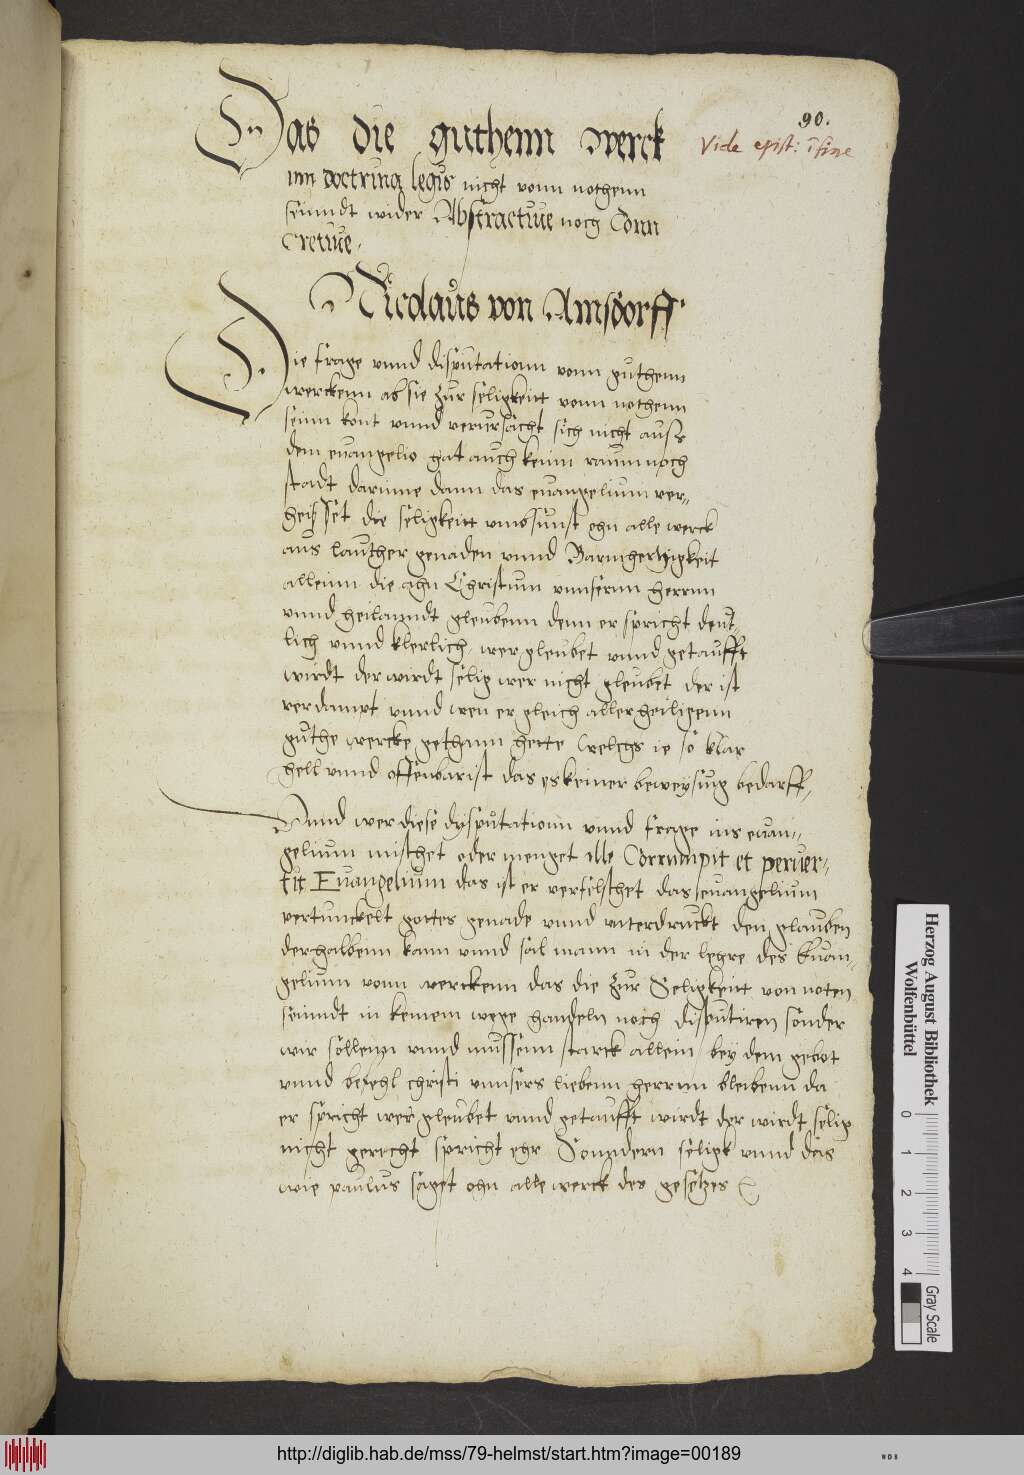 90.
Vide epist: ī fine
Das die guthenn werck
inn doctrina legis nicht vonn nothenn
seinndt wider Abstractiue noch Conn
cretiue.
Nicolaus von Amsdorff.
Die frage vnnd disputationn vonn guthenn
werckenn ab sie zur seligkeitt vonn nothenn
seinn kont vnnd verursacht sich nicht auss
dem euangelio hat auch keinn raum noch
stadt darinne dann das euangelium ver-
heisset die seligkeitt vmbsunst ohn alle werck
aus lauther genaden vnnd Barmhertzigkeit
alleinn die ahn Christum vnnsernn herrnn
vnnd heilanndt gleubenn denn er spricht deut
lich vnnd klerlich, wer gleubet vnnd getaufft
wirdt der wirdt selig wer nicht gleubet der ist
verdampt vnnd wen er gleich aller heiligenn
guthe wercke gethann hette Welchs ie so klar
hell vnnd offenbar ist das es keiner beweysung bedarff,
Vnnd wer diese dysputationn vnnd frage ins euan-
gelium mischet oder menget ille Corrumpit et peruer-
tit Euangelium das ist er verfelschet das euangelium
vertunckelt gottes genade vnnd vnterdruckt den glauben
derhalbenn kann vnnd sal mann in der lehre des Euan-
gelium vonn werckenn das die zur Seligkeitt von noten
seinndt in keinem wege handeln noch disputiren sonder
wir sollenn vnnd mussenn starck allein bey dem gebot
vnnd befehl christi vnnsers liebenn herrnn bleibenn da
er spricht wer gleubet vnnd getaufft wirdt der wirdt selig
nicht gerecht spricht ehr Sonndern seligk vnnd das
wie paulus saget ohn alle werck des gesetzes
Herzog August Bibliothek
Wolfenbüttel
0 1 2 3 4
Gray Scale
http://diglib.hab.de/mss/79-helmst/start.htm?image=00189
WDB